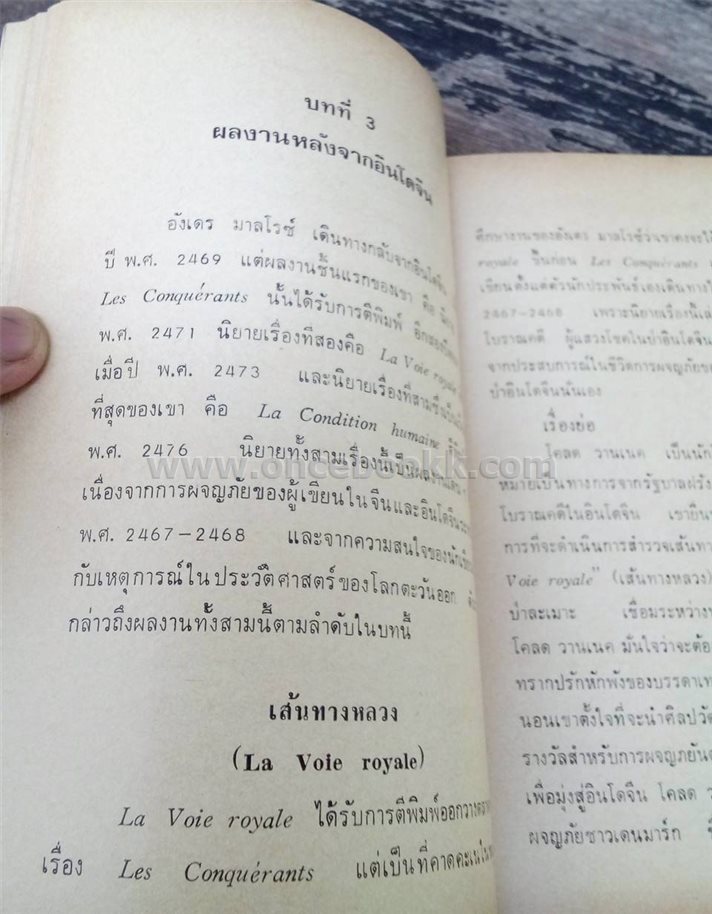 บทที่ 3
ผลงานหลังจากอินโดจีน
อังเดร มาลโรซ์ เดินทางกลับจากอินโดจีน
ปี พ.ศ. 2469 แต่ผลงานชิ้นแรกของเขา คือ
Les Conquérants นั้นได้รับการตีพิมพ์
พ.ศ. 2471 นิยายเรื่องที่สองคือ La Voie royale
เมื่อปี พ.ศ. 2473 และนิยายเรื่องที่สามซึ่งเป็น
ที่สุดของเขา คือ La Condition humaine
พ.ศ. 2476 นิยายทั้งสามเรื่องนี้เป็นผลงาน
เนื่องจากการผจญภัยของผู้เขียนในจีนและอินโดจีน
พ.ศ. 2467-2468 และจากความสนใจของนักเขียน
กับเหตุการณ์ในประวัติศาสตร์ของโลกตะวันออก
กล่าวถึงผลงานทั้งสามนี้ตามลำดับในบทนี้
เส้นทางหลวง
(La Voie royale)
La Voie royale ได้รับการตีพิมพ์ออกวางตลาด
เรื่อง Les Conquérants แต่เป็นที่คาดคะเนใน
ศึกษางานของอังเดร มาลโรซ์ว่าเขาคงจะ
royale ขึ้นก่อน Les Conquérants
เขียนตั้งแต่ตัวนักประพันธ์เองเดินทาง
2467-2468 เพราะนิยายเรื่องนี้
โบราณคดี ผู้แสวงโชคในป่าอินโดจีน
จากประสบการณ์ในชีวิตการผจญภัยของ
ป่าอินโดจีนนั่นเอง
เรื่องย่อ
โคลด วานเนค เป็นนัก
หมายเป็นทางการจากรัฐบาลฝรั่ง
โบราณคดีในอินโดจีน เขายืน
การที่จะดำเนินการสำรวจเส้นทา
Voie royale" (เส้นทางหลวง)
ป่าละเมาะ เชื่อมระหว่าง
โคลด วานเนค มั่นใจว่าจะต้อง
ทรากปรักหักพังของบรรดาเท
นอนเขาตั้งใจที่จะนำศิลปวั
รางวัลสำหรับการผจญภัยอัน
เพื่อมุ่งสู่อินโดจีน โคลด ว
ผจญภัยชาวเดนมาร์ก
www.oncebookk.com